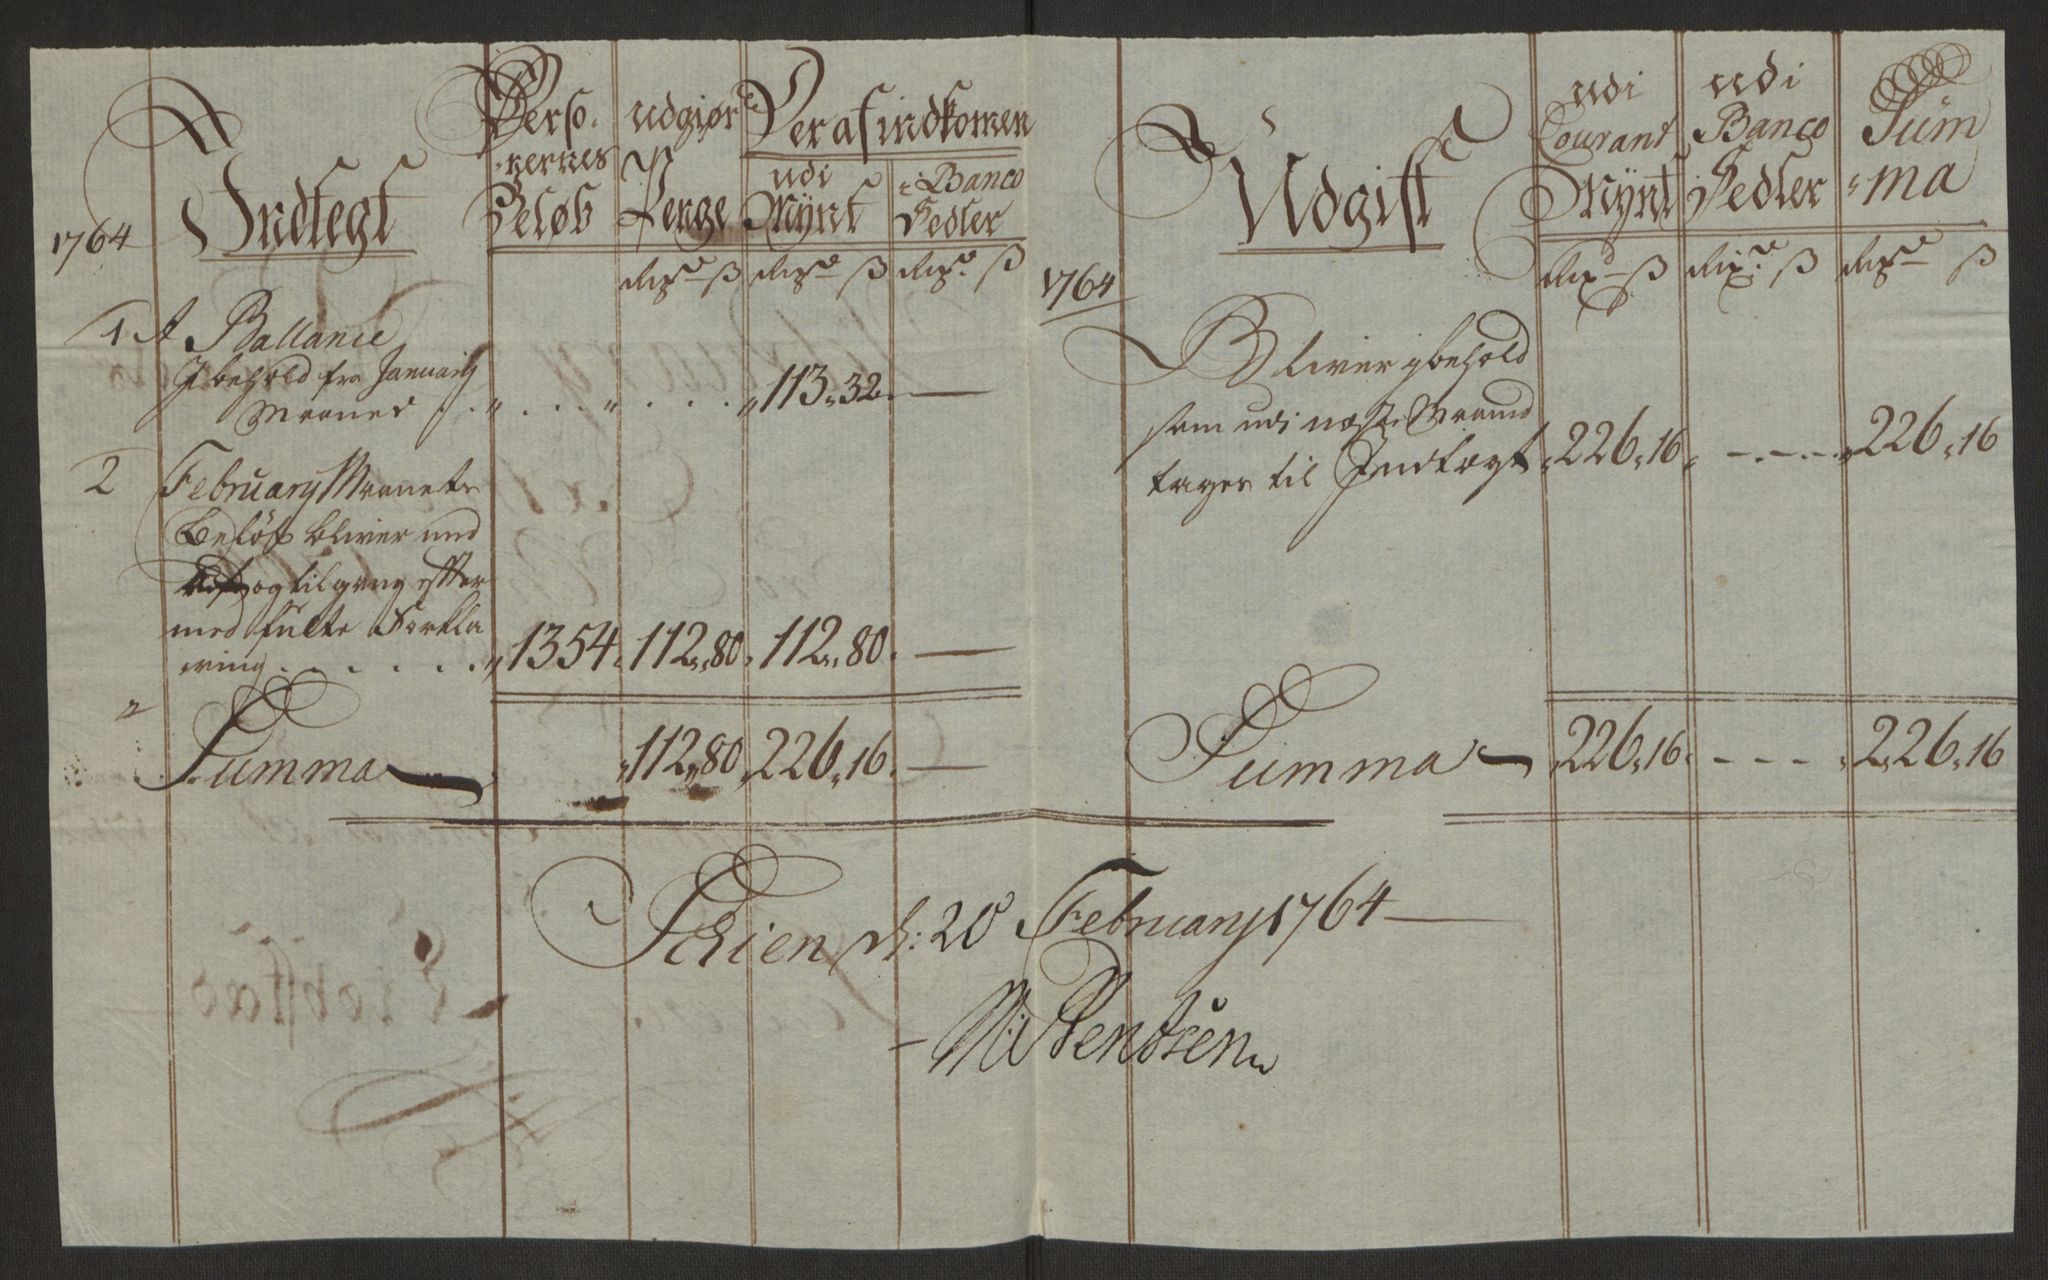 1764
Indtegt
Perso-
nernes
Beløb
Udgiør
Penge
Derafindkomen
udi
Mÿnt
i Banco
Sedler
Rixd ß Rixd ß Rixd ß
1 A Ballance
I behold fra January
Maaned . . „ . . . „ . . . . „ 113„32 —
2 February Maaneds
Beløb bliver med
og tilgang efter
med fulte Forkla
ring . . . . . . „ 1354. 112„80. 112„80. —
Summa „112„80„ 226„16. —
1764
Udgift
udi
Courant
Mÿnt
udi
Banco
Sedler
Sum
ma
Rixd ß Rixd ß Rixd ß
Bliver i behold
som udi næste Maaned
tages til Indtægt „226„16„ - - - - „226„16
Summa „226„16. - - - - „226„16
Schien d: 20 February 1764 —